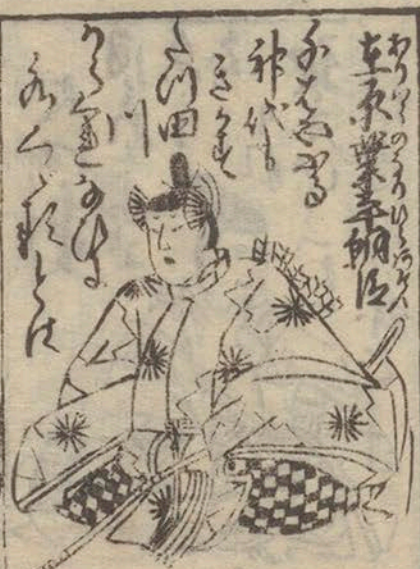 ありハらのなりひらあそん
在原業平朝臣
千はやふる
神代も
きかす
たつ田
川
からくれなゐに
水くゝるとは